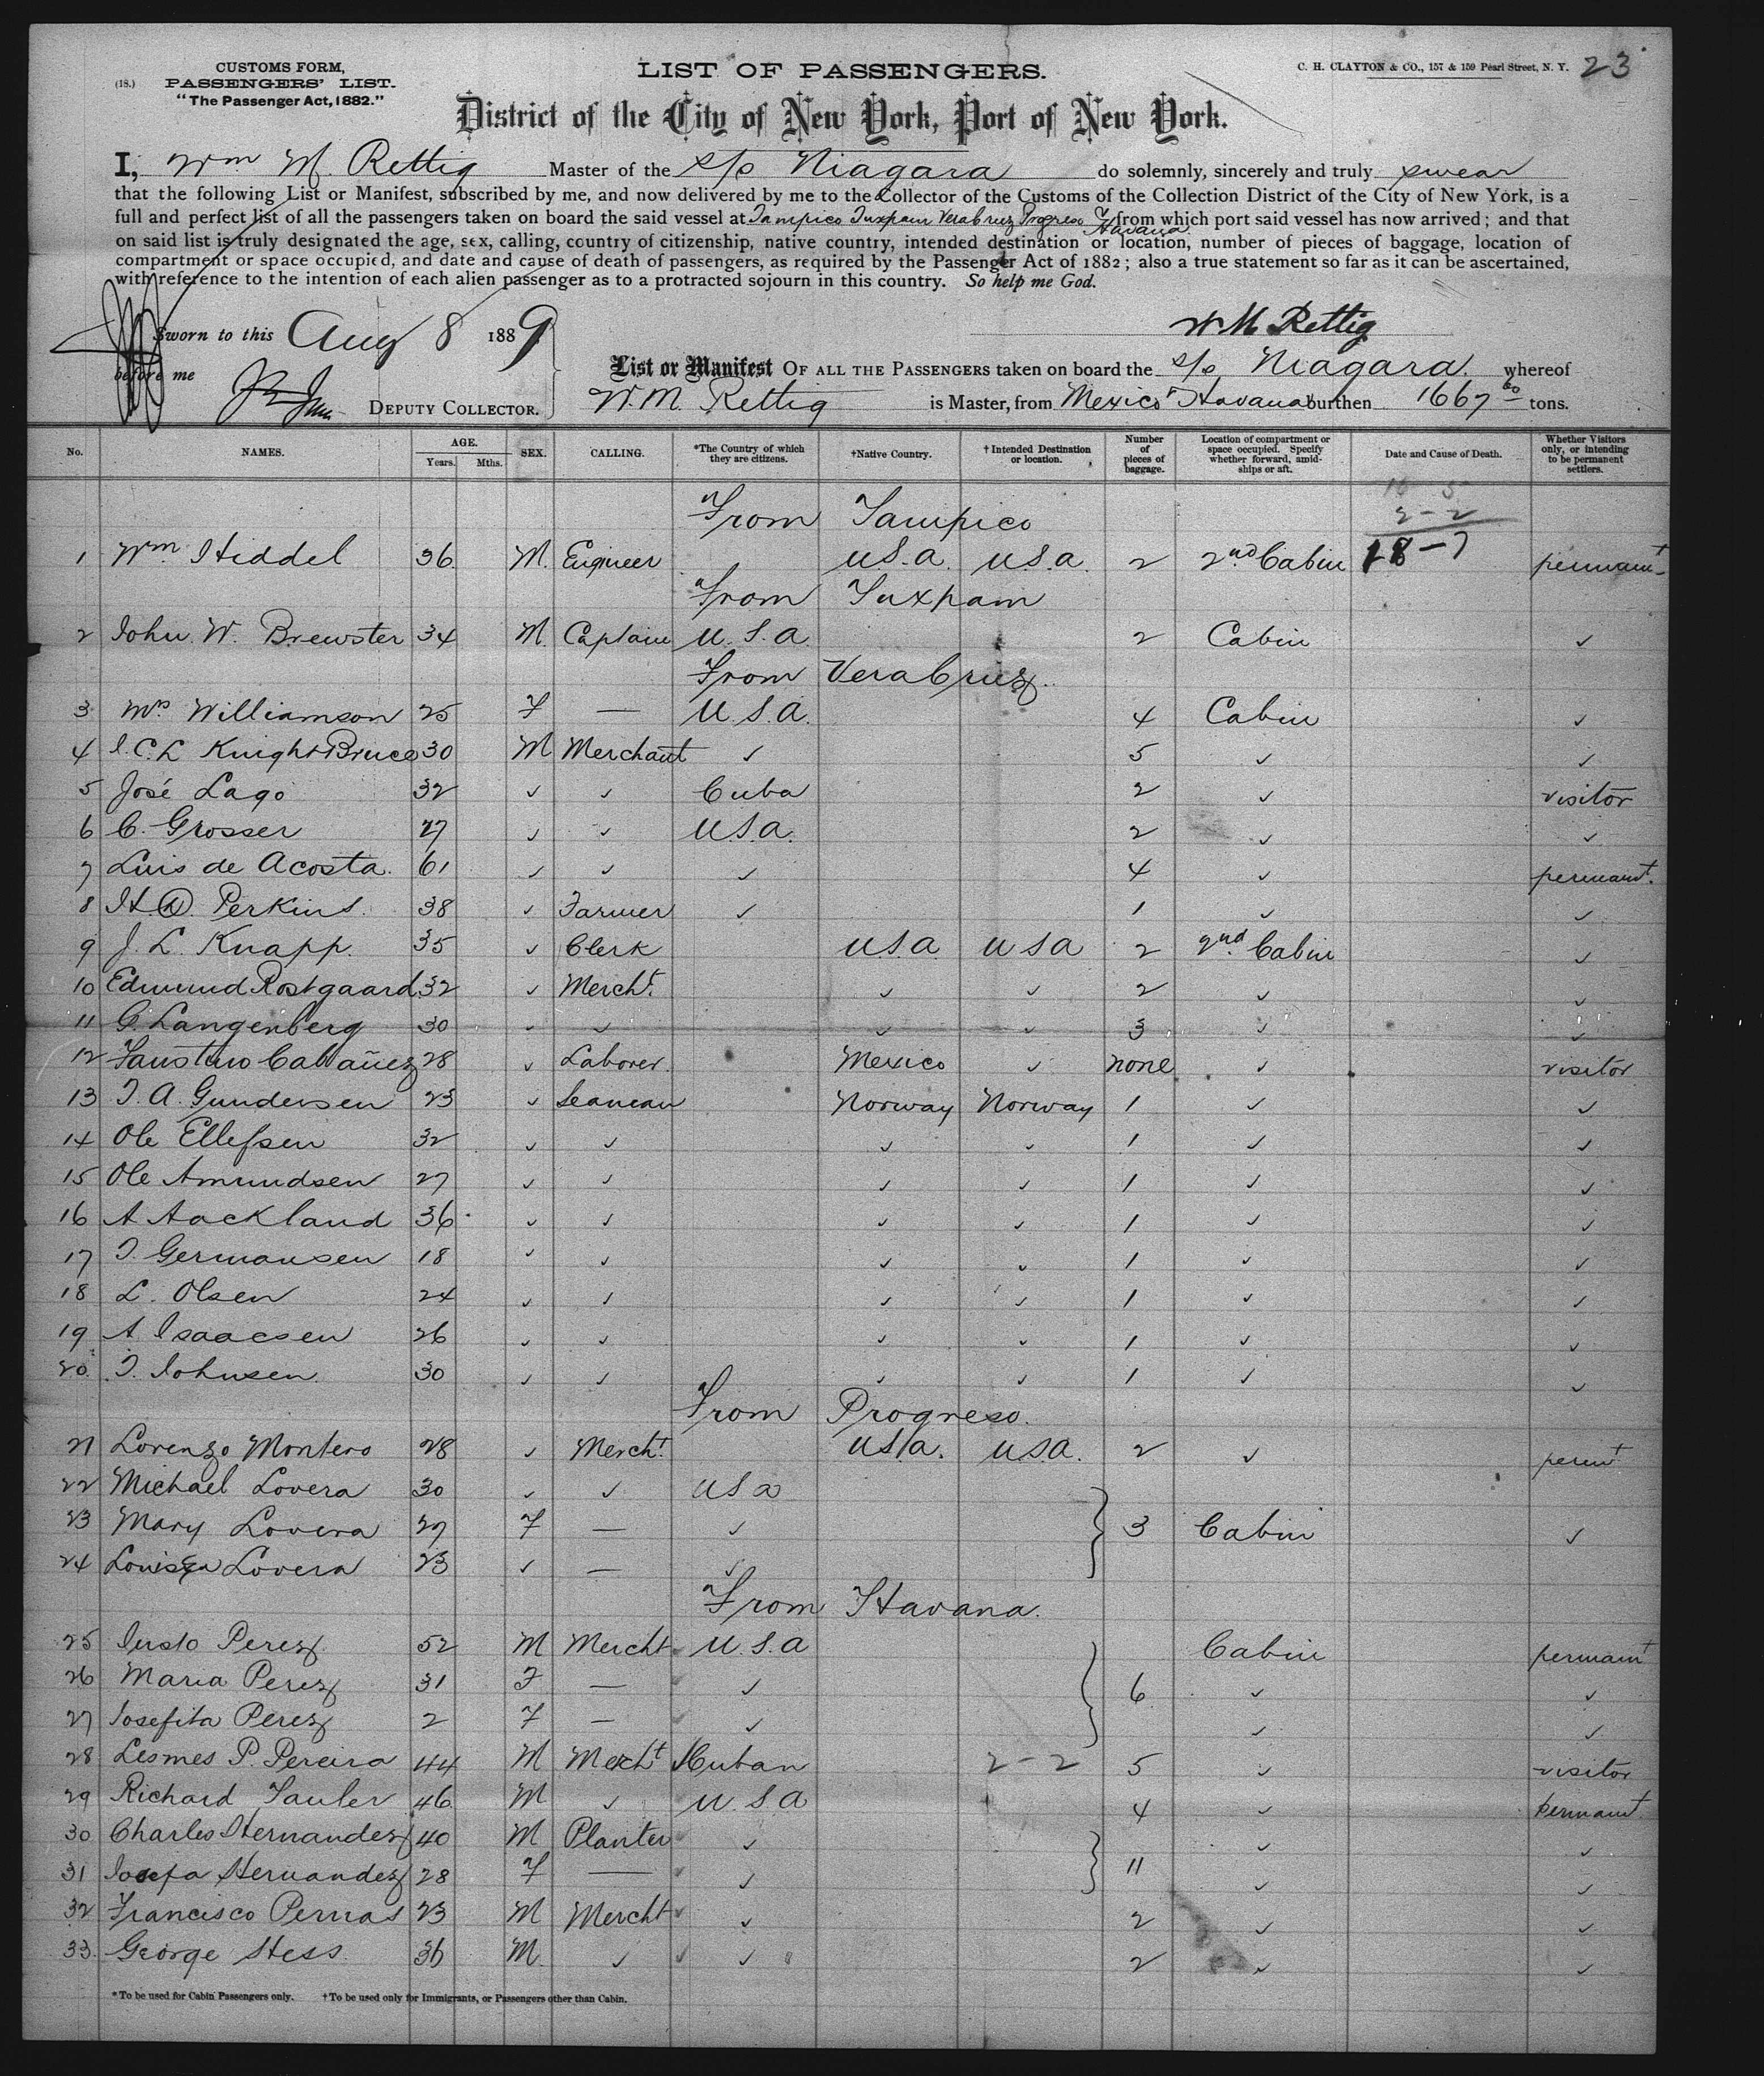 23
(18.) CUSTOMS FORM,
PASSENGERS' LIST.
"The Passenger Act, 1882."
LIST OF PASSENGERS.
C. H. CLAYTON & CO., 157 & 159 Pearl Street, N. Y.
District of the City of New York, Port of New York.
I, Wm M. Rettig Master of the S/S Niagara do solemnly, sincerely and truly swear
that the following List or Manifest, subscribed by me, and now delivered by me to the Collector of the Customs of the Collection District of the City of New York, is a
full and perfect list of all the passengers taken on board the said vessel at Tampico Tuxpam Vera Cruz Progreso & Havana from which port said vessel has now arrived; and that
on said list is truly designated the age, sex, calling, country of citizenship, native country, intended destination or location, number of pieces of baggage, location of
compartment or space occupied, and date and cause of death of passengers, as required by the Passenger Act of 1882; also a true statement so far as it can be ascertained,
with reference to the intention of each alien passenger as to a protracted sojourn in this country. So help me God.
W M Rettig
Sworn to this Aug 8 1889
before me
DEPUTY COLLECTOR.
List or Manifest OF ALL THE PASSENGERS taken on board the S/S Niagara. whereof
W. M. Rettig is Master, from Mexico & Havana burthen 1667 60 tons.
No. NAMES. AGE. Years. Mths. SEX. CALLING. *The Country of which they are citizens. †Native Country. †Intended Destination or location. Number of pieces of baggage. Location of compartment or space occupied. Specify whether forward, amidships or aft. Date and Cause of Death. Whether Visitors only, or intending to be permanent settlers.
From Tampico
2-2
18-7
1 Wm Hiddel 36 M. Engineer U.S.A. U.S.A. 2 2nd Cabin permant
From Tuxpam
2 John W. Brewster 34 M. Captain U.S.A. 2 Cabin ✓
From Vera Cruz
3 Mrs Williamson 25 F — U.S.A. 4 Cabin ✓
4 J.C.L Knight Bruce 30 M Merchant ✓ 5 ✓ ✓
5 José Lago 32 ✓ ✓ Cuba 2 ✓ visitor
6 C. Grosser 27 ✓ ✓ U.S.A. 2 ✓ ✓
7 Luis de Acosta 61 ✓ ✓ ✓ 4 ✓ permant.
8 H.D. Perkins. 38 ✓ Farmer ✓ 1 ✓ ✓
9 J. L. Knapp. 35 ✓ Clerk U.S.A U S A 2 2nd Cabin ✓
10 Edmund Rostgaard 32 ✓ Mercht. ✓ ✓ 2 ✓ ✓
11 G. Langenberg 30 ✓ ✓ ✓ ✓ 3 ✓ ✓
12 Faustino Cabañez 28 ✓ Laborer. Mexico ✓ none ✓ visitor
13 T. A. Gundersen 23 ✓ Seaman Norway Norway 1 ✓ ✓
14 Ole Ellefsen 32 ✓ ✓ ✓ ✓ 1 ✓ ✓
15 Ole Amundsen 27 ✓ ✓ ✓ ✓ 1 ✓ ✓
16 A Aackland 36 ✓ ✓ ✓ ✓ 1 ✓ ✓
17 T. Germansen 18 ✓ ✓ ✓ ✓ 1 ✓ ✓
18 L. Olsen 24 ✓ ✓ ✓ ✓ 1 ✓ ✓
19 A. Isaacsen 26 ✓ ✓ ✓ ✓ 1 ✓ ✓
20. T. Johnsen 30 ✓ ✓ ✓ ✓ 1 ✓ ✓
From Progreso.
21 Lorenzo Montero 28 ✓ Mercht. U.S.A. U.S.A. 2 ✓ permt
22 Michael Lovera 30 ✓ ✓ U S A
23 Mary Lovera 27 F — ✓ 3 Cabin ✓
24 Louisa Lovera 23 ✓ — ✓
From Havana.
25 Justo Perez 52 M Mercht U.S.A Cabin permant
26 Maria Perez 31 F — ✓ 6 ✓ ✓
27 Josefita Perez 2 F — ✓ ✓ ✓
28 Lesmes P. Pereira 44 M Mercht Cuban 2-2 5 ✓ visitor
29 Richard Fauler 46 M ✓ U.S.A 4 ✓ permant
30 Charles Hernandez 40 M Planter ✓ ✓ ✓
31 Josefa Hernandez 28 F — ✓ 11 ✓ ✓
32 Francisco Pernas 23 M Mercht ✓ 2 ✓ ✓
33. George Hess 36 M ✓ ✓ 2 ✓ ✓
*To be used for Cabin Passengers only. †To be used only for Immigrants, or Passengers other than Cabin.